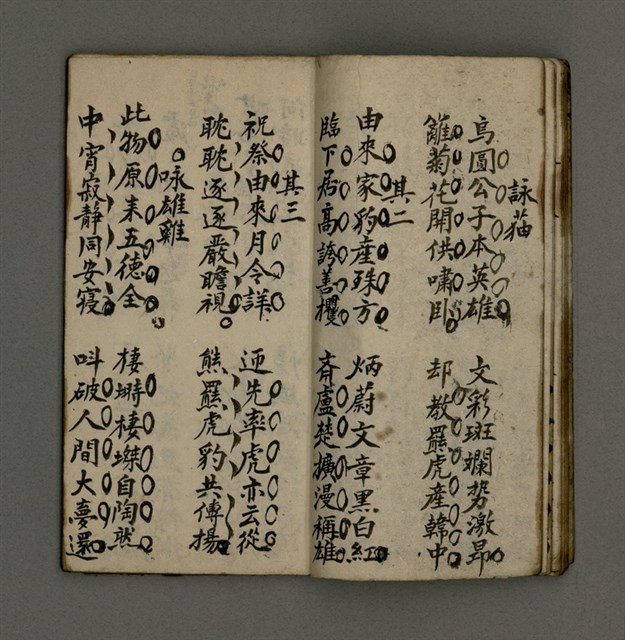 詠猫
烏圓公子本英雄 文彩斑斕势激昂
籬菊花開供嘯卧 却教羆虎產韓中
其二
由來家豹產殊方 炳蔚文章黑白紅
臨下居高誇善攫 斉盧楚獷漫稱雄
其三
祝祭由來月令詳 迊先率虎亦云從
耽耽逐逐嚴瞻視 熊羆虎豹共傳揚
咏雄雞
此物原来五德全 棲塒棲塒自陶然
中宵寂靜同安寢 呌破人間大夢還